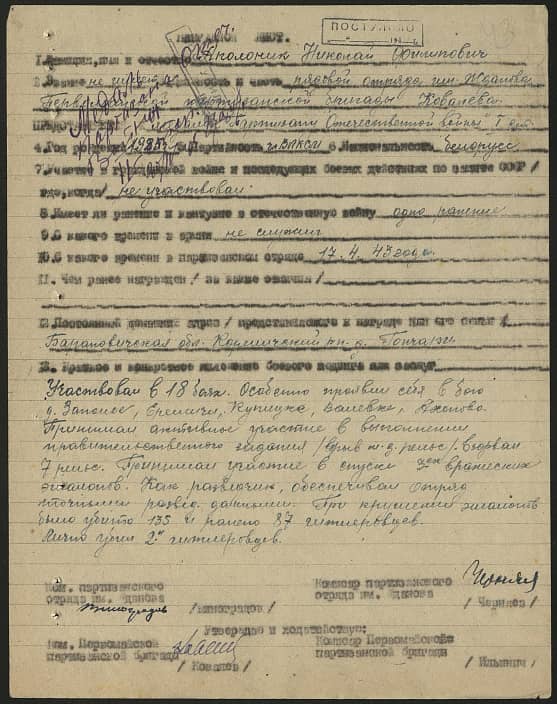 ПОСТУПИЛО
НАГРАДНОЙ ЛИСТ.
1. Фамилия, имя и отчество Аполоник Николай Филиппович
2. Звание не имеет должность и часть рядовой отряда им. Жданова
Первомайской партизанской бригады Ковалева
Партизану Отечественной войны I ст.
4. Год рождения 5. Партийность чл. ВЛКСМ 6. Национальность белорусс
7. Участие в гражданской войне и последующих боевых действиях по защите СССР /
где, когда/ не участвовал
8. Имеет ли ранения и контузии в отечественную войну одно ранение
9. С какого времени в армии не служил
10. С какого времени в партизанском отряде 17.4.43 года.
11. Чем ранее награжден / за какие отличия /
12. Постоянный домашний адрес / представляемого к награде или его семьи /
Барановичская обл. Кореличский р-н д. Гончары
13. Краткое и конкретное изложение боевого подвига или заслуг
Участвовал в 18 боях. Особенно проявил себя в бою
д. Заполье, Еремичи, Купицка, Валевка,
Принимал активное участие в выполнении
правительственного задания /взрыв ж.д. рельс/. Взорвал
7 рельс. Принимал участие в спуске вражеских
эшалонов. Как разведчик, обеспечивал отряд
точными развед. данными. При крушении эшалонов
было убито 135 и ранено 87 гитлеровцев.
Лично убил 2 гитлеровцев.
Ком. партизанского
отряда им. Жданова
/Виноградов/
Комиссар партизанского
отряда им. Жданова
/ Черняев /
Утверждаю и ходатайствую:
Ком. Первомайской
партизанской бригады
/ Ковалев /
Комиссар Первомайской
партизанской бригады
/ Ильиных /